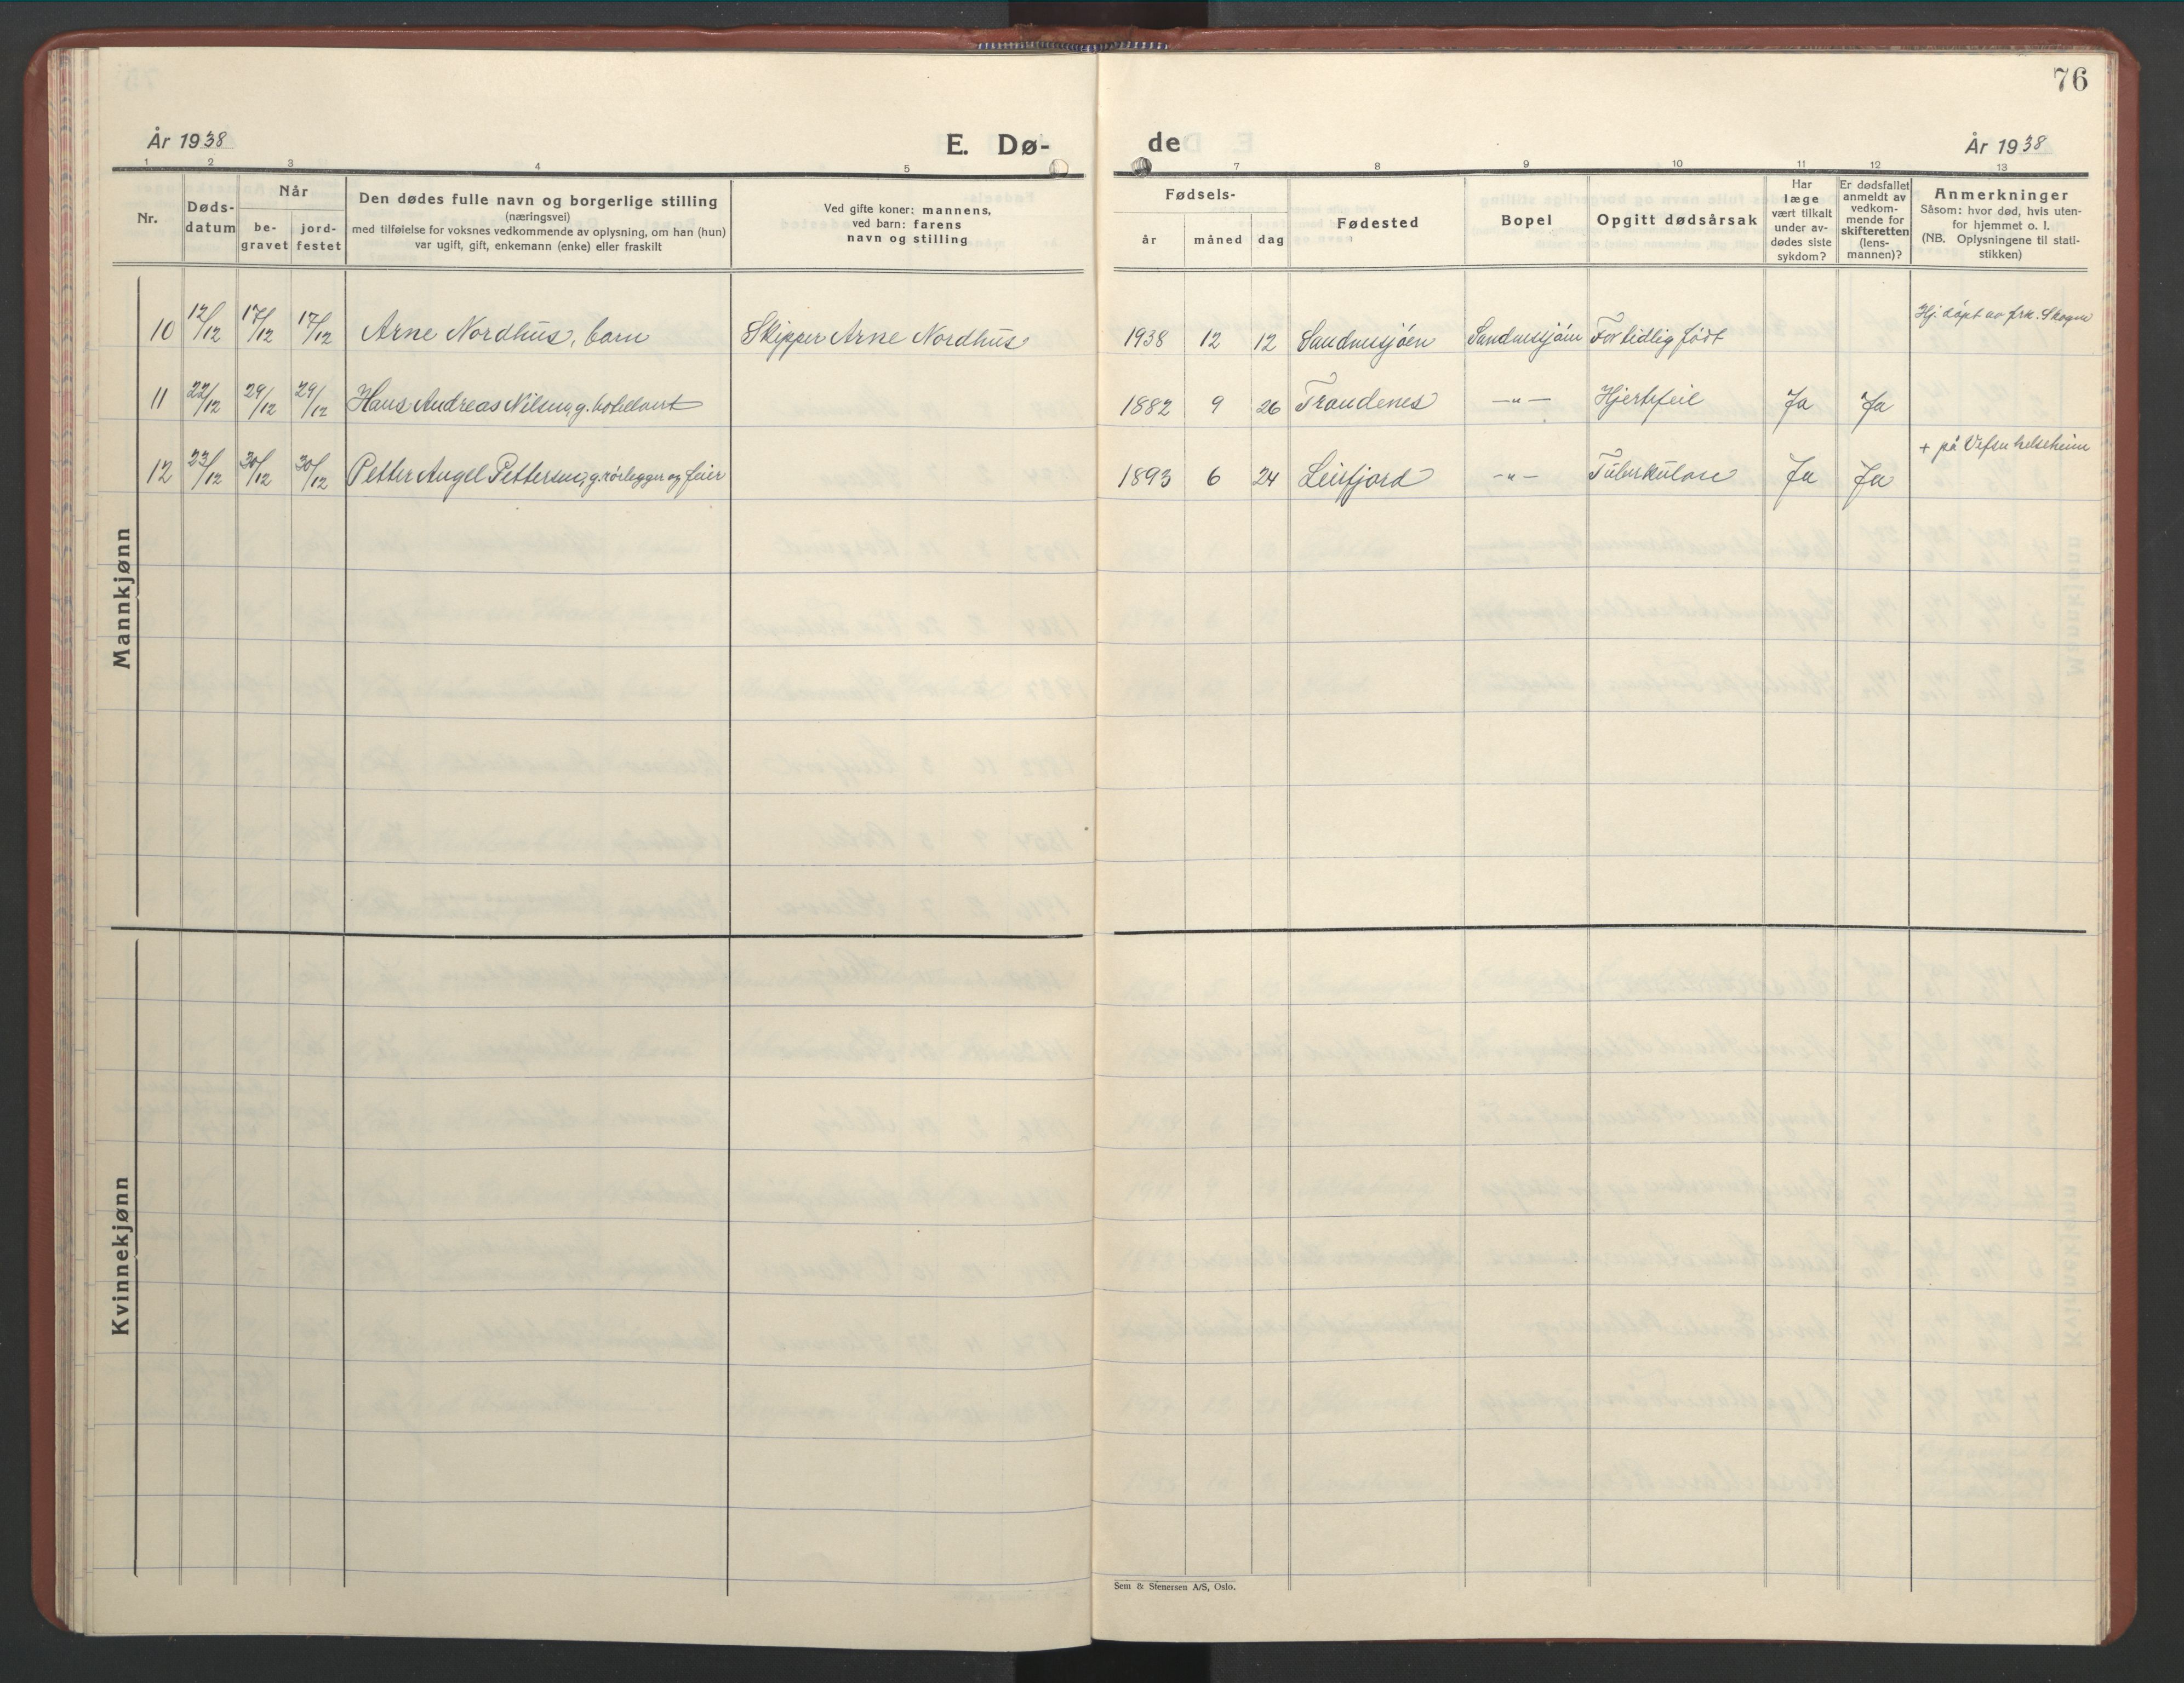 76
År 1938 E. Dø- de År 1938
1 2 3 4 5 7 8 9 10 11 12 13
Nr.
Døds-
datum
Når
be-
gravet
jord-
festet
Den dødes fulle navn og borgerlige stilling
(næringsvei)
med tilføielse for voksnes vedkommende av oplysning, om han (hun)
var ugift, gift, enkemann (enke) eller fraskilt
Ved gifte koner: mannens,
ved barn: farens
navn og stilling
Fødsels-
år måned dag
Fødested
Bopel
Opgitt dødsårsak
Har
læge
vært tilkalt
under av-
dødes siste
sykdom?
Er dødsfallet
anmeldt av
vedkom-
mende for
skifteretten
(lens-
mannen)?
Anmerkninger
Såsom: hvor død, hvis uten-
for hjemmet o. l.
(NB. Oplysningene til stati-
stikken)
Mannkjønn
10 12/12 17/12 17/12 Arne Nordhus, barn Skipper Arne Nordhus 1938 12 12 Sandnessjøen Sandnessjøen For tidlig født Hj. døpt av frk. Skogmo
11 22/12 29/12 29/12 Hans Andreas Nilsen, g. hotellvert 1882 9 26 Trondenes —"— Hjertefeil Ja Ja
12 23/12 30/12 30/12 Petter Angel Pettersen, g. rørlegger og feier 1893 6 24 Leirfjord —"— Tuberkulose Ja Ja + på Vefsn helseheim
Kvinnekjønn
Sem & Stenersen A/S, Oslo.